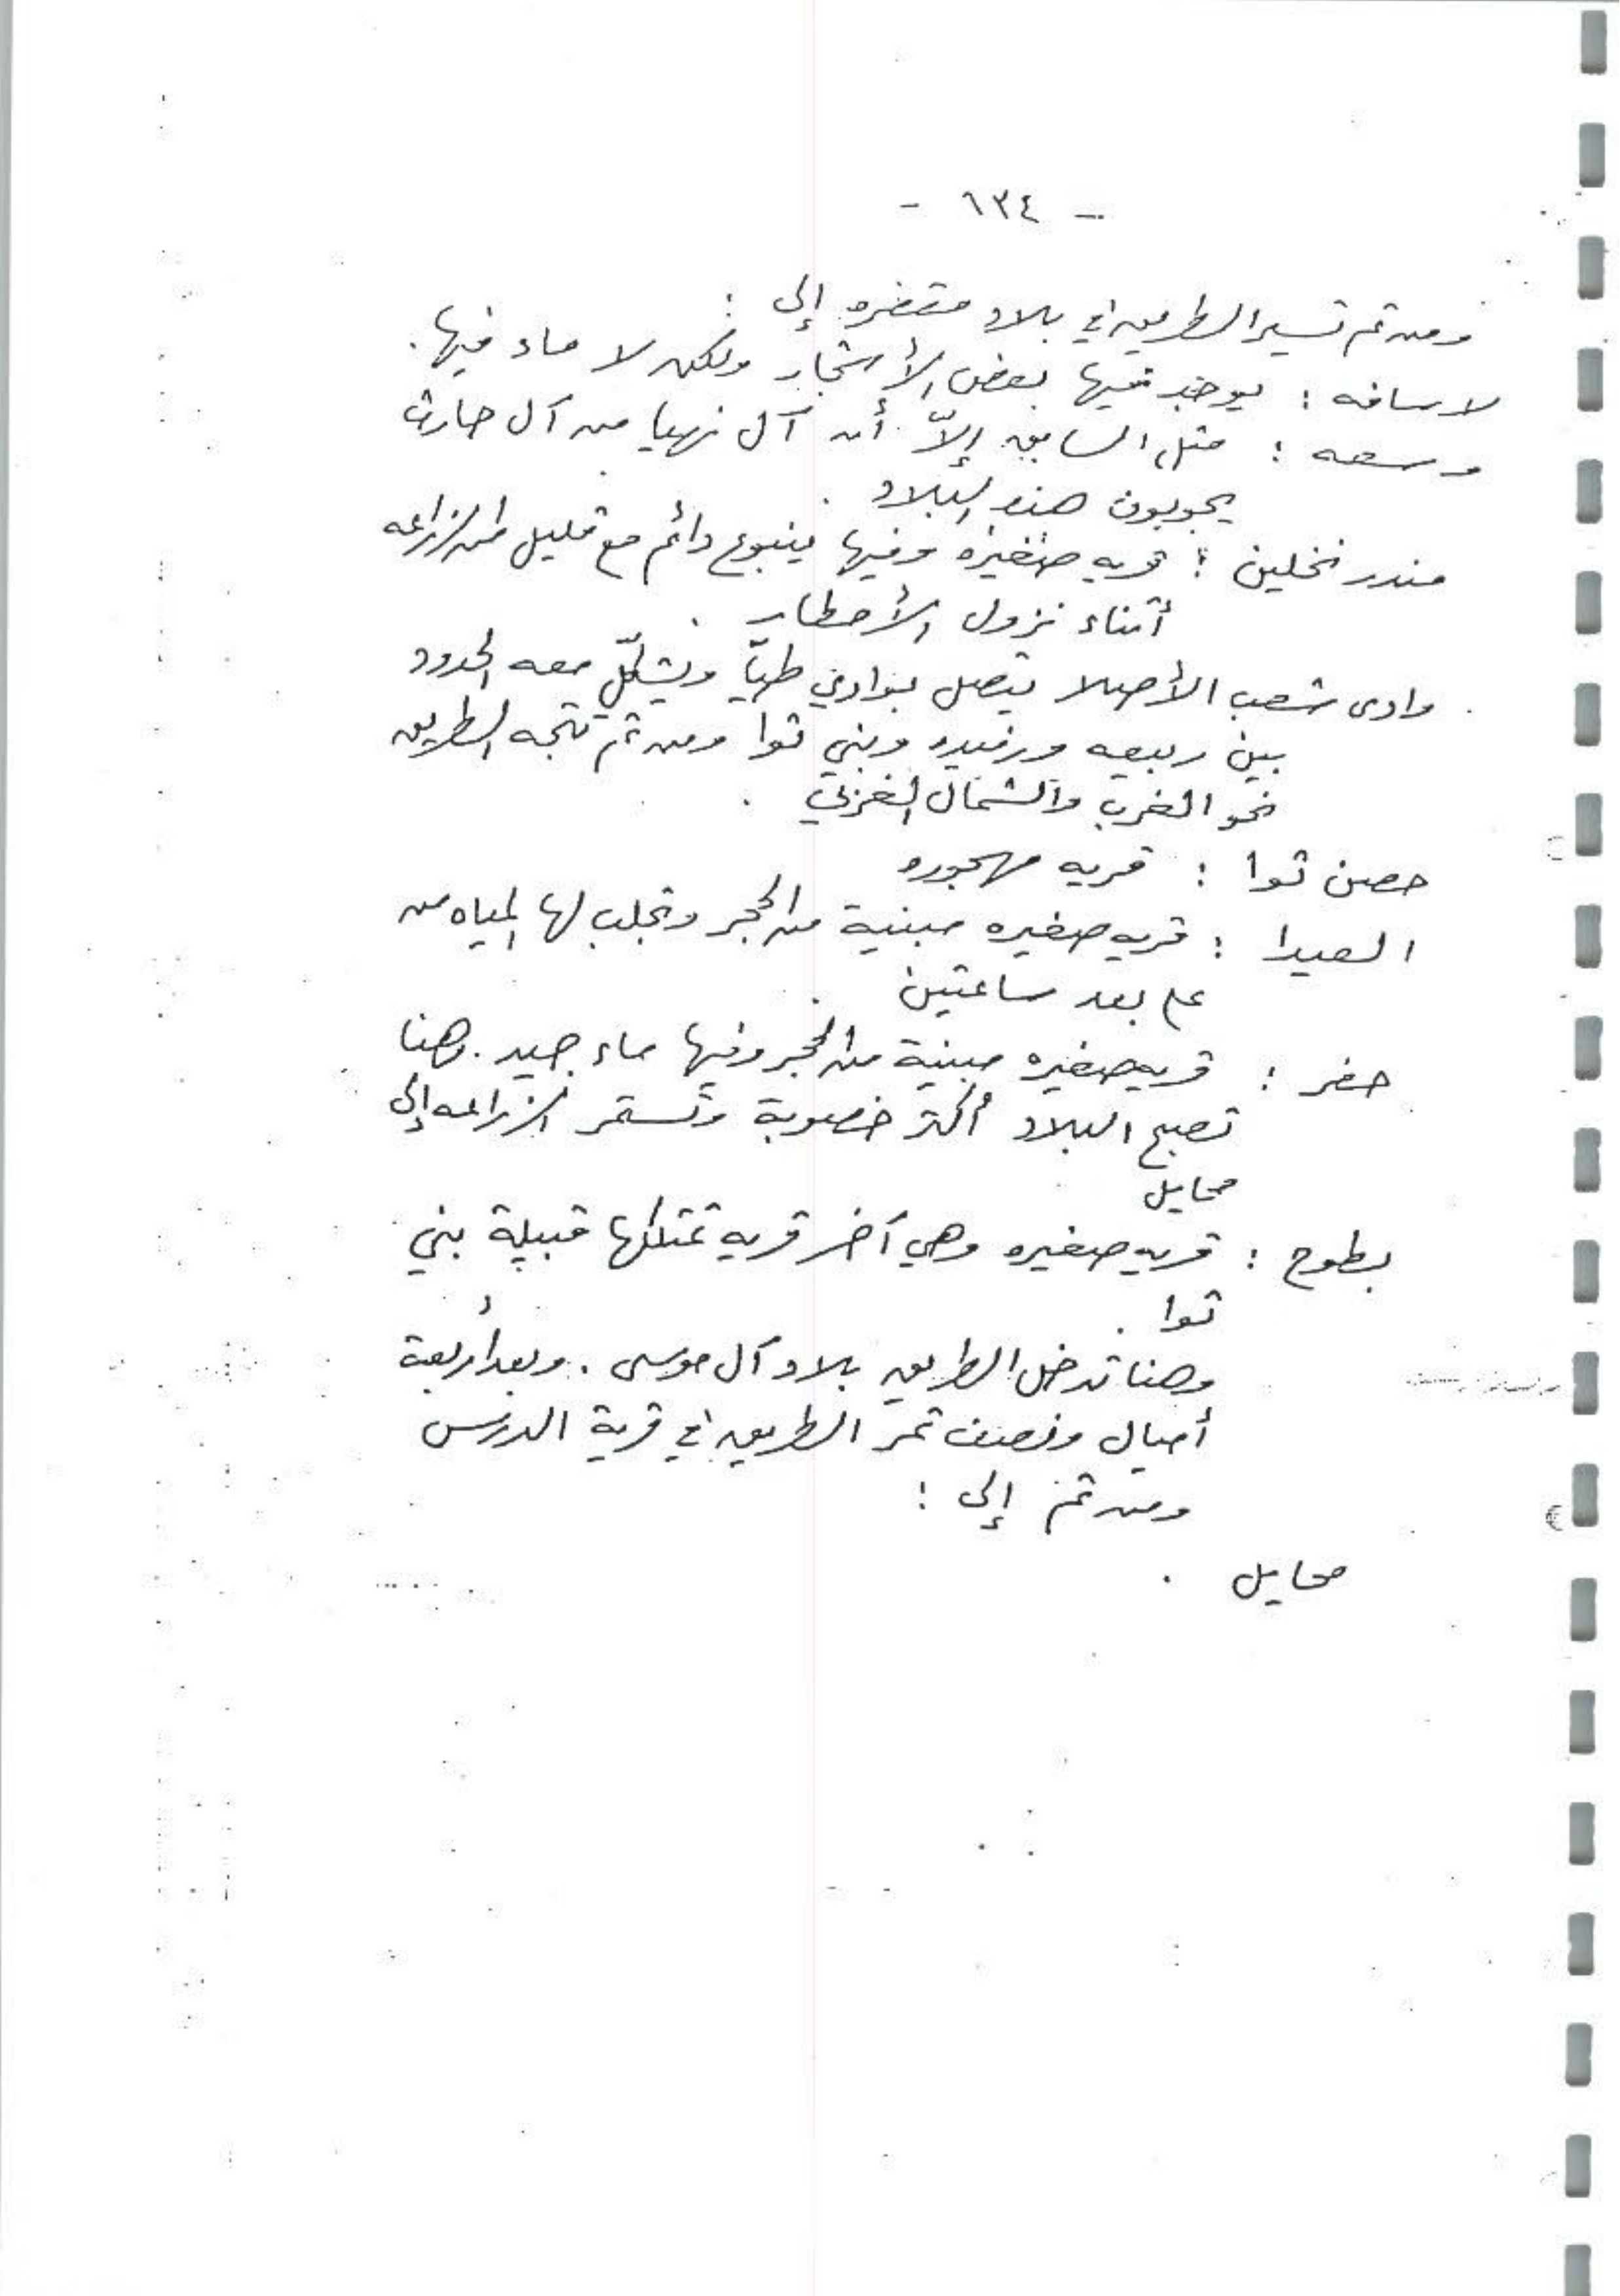 - ١٣٤ -
ومن ثم تسير الطريق في بلاد مقفره إلى :
لاسافه : يوجد فيها بعض الأشجار ولكن لا ماء فيها .
وسعه : مثل السابق إلاّ أن آل نهيا من آل حارث
يجوبون هذه البلاد .
مندر نخلين : قريه صغيره وفيها ينبوع دائم مع قليل من الزراعه
أثناء نزول الأمطار .
وادى شعب الأصلا يتصل بوادي طيّا ويشكّل معه الحدود
بين ربيعه ورفيده وبني ثوا ومن ثم تتجه الطريق
نحو الغرب والشمال الغربي .
حصن ثوا : قريه مهجوره
العيدا : قريه صغيره مبنية من الحجر وتجلب لها المياه من
على بعد ساعتين .
حفر : قريه صغيره مبنية من الحجر وفيها ماء جيد . وهنا
تصبح البلاد أكثر خصوبة وتستمر الزراعه إلى
محايل
بطوح : قريه صغيره وهي آخر قريه تمتلكها قبيلة بني
ثوا .
وهنا تدخل الطريق بلاد آل موسى . وبعد أربعة
أميال ونصف تمر الطريق في قرية الدرس
ومن ثم إلى :
محايل .